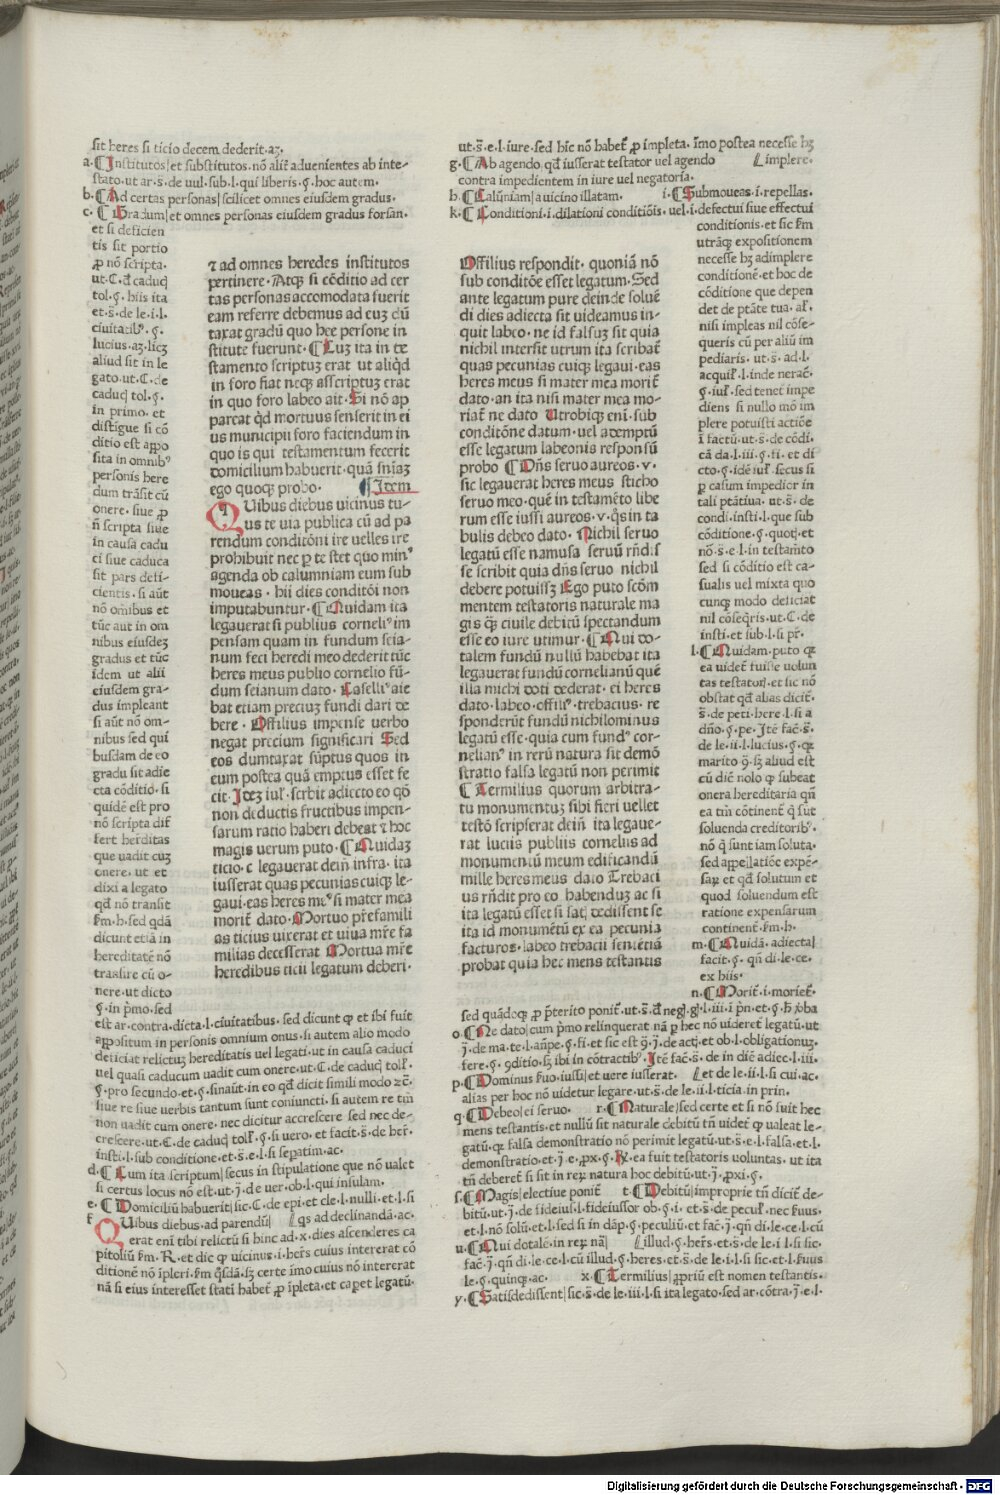 sit heres si ticio decem dederit. az.
a. Institutos|et substitutos. nō alit̄ aduenientes ab inte-
stato. ut ar. s̄. de uul. sub. l. qui liberis. §. hoc autem.
b. Ad certas personas|scilicet omnes eiusdem gradus.
c. Gradum|et omnes personas eiusdem gradus forsan.
et si deficien
tis sit portio
ꝓ nō scripta.
ut. C. d̄ caduc̄
tol. §. hiis ita
et. s̄. de le. i. l.
ciuitatibꝰ. §.
lucius. az. licz
aliud sit in le
gato. ut. C. de
caduc̄ tol. §.
in primo. et
distigue si cō
ditio est appo
sita in omnibꝰ
personis here
dum trāsit cū
onere. siue ꝓ
n̄ scripta siue
in causā cadu
ci siue caduca
sit pars defi-
cientis. si aūt
nō omībus et
tūc aut in om
nibus eiusdez
gradus et tūc
idem ut alii
eiusdem gra-
dus impleant
si aūt nō om-
nibus sed qui
busdam de eo
gradu sit adie
cta cōditio. si
quidē est pro
nō scripta dif
fert herditas
que uadit cuz
onere. ut et
dixi a legato
qd̄ nō transit
ẜm. h. sed qdā
dicunt etiā in
hereditatē nō
transire cū o-
nere. ut dicto
§. in p̄mo. sed
est ar. contra. dicta. l. ciuitatibus. sed dicunt ꝙ et ibi fuit
appositum in personis omnium onus. si autem alio modo
deficiat relictuz hereditatis uel legati. ut in causa caduci
uel quasi caducum uadit cum onere. ut. C. de caduc̄ tolł.
§. pro secundo. et. §. sinaūt. in eo qd̄ dicit simili modo ⁊c̄.
siue re siue uerbis tantum sunt coniuncti. si autem re tm̄
non uadit cum onere. nec dicitur accrescere sed nec de-
crescere. ut. C. de caduc̄ tolł. §. si uero. et facit. s̄. de her̄.
insti. l. sub conditione. et. s̄. e. l. si sepatim. ac.
d. Cum ita scriptum|secus in stipulatione que nō ualet
si certus locus nō est. ut. j̄. de uer. ob. l. qui insulam.
e. Domiciliū habuerit|sic. C. de epi. et cle. l. nulli. et. l. si
f Quibus diebus. ad parendū| qs ad declinandā. ac.
erat eni tibi relictū si hinc ad. x. dies ascenderes ca
pitoliū ẜm. R. et dic ꝙ uicinus. i. her̄s cuius intererat cō
ditionē nō īpleri. ẜm qsdā. sz certe īmo cuius nō intererat
nā si eius interesset stati habet̄ ꝓ īpleta. et capet legatū.
⁊ ad omnes heredes institutos
pertinere. Atqꝫ si cōditio ad cer
tas personas accomodata fuerit
eam referre debemus ad cuz dū
taxat gradū quo hee persone in
stitute fuerunt. Cuz ita in te
stamento scriptuz erat ut aliqd
in foro fiat neqꝫ asscriptuz erat
in quo foro labeo ait. Si nō ap
pareat qd mortuus senserit in ei
us municipii foro faciendum in
quo is qui testamentum fecerit
domicilium habuerit. quā sniaz
ego quoqꝫ probo. Idem
Quibus diebus uicinus tu-
us te uia publica cū ad pa
rendum conditōni ire uelles ire
prohibuit nec ꝑ te stet quo minꝰ
agenda ob calumniam eum sub
moueas. hii dies conditōi non
imputabuntur. Quidam ita
legauerat si publius corneliꝰ im
pensam quam in fundum seia-
num feci heredi meo dederit tūc
heres meus publio cornelio fū-
dum seianum dato. Caselliꝰ aie
bat etiam preciuz fundi dari de
bere. Offilius impense uerbo
negat precium significari Sed
eos dumtaxat sūptus quos in
eum postea quā emptus esset fe
cit. Idez iul. scrbit adiecto eo qd
non deductis fructibus impen-
sarum ratio haberi debeat ⁊ hoc
magis uerum puto. Quidaz
ticio. c legauerat dein̄ infra. ita
iusserat quas pecunias cuiqꝫ le-
gaui. eas heres meꝰ si mater mea
morit̄ dato. Mortuo p̄refamili
as ticius uixerat et uiua mr̄e fa
milias decesserat Mortua mr̄e
heredibus ticii legatum deberi.
ut. s̄. e. l. iure. sed hic nō habet̄ ꝓ impleta. īmo postea necesse hz
g. Ab agendo. qd̄ iusserat testator uel agendo implere.
contra impedientem in iure uel negatoria.
h. Calūniam|a uicino illatam. i. Submoueas. i. repellas.
k. Conditioni. i. dilationi conditiōis. uel. i. defectui siue effectui
conditionis. et sic ẜm
utrāqꝫ expositionem
necesse hz adimplere
conditionē. et hoc de
cōditione que depen
det de ptāte tua. al̄.
nisi impleas nil cōse-
queris cū per aliū im
pediaris. ut. s̄. ad. l.
acquir̄. l. inde nerac̄.
§. iul̄. sed tenet impe
diens si nullo mō im
plere potuisti actiōe
ī factū. ut. s̄. de cōdi.
cā da. l. iii. §. fi. et di
cto. §. idē iul̄. secus si
ꝑ casum impedior in
tali ptātiua. ut. s̄. de
condi. insti. l. que sub
cōditione. §. quotj. et
nō. s̄. e. l. in testam̄to
sed si cōditio est ca-
sualis uel mixta quo
cunqꝫ modo deficiat
nil cōseqris. ut. C. de
insti. et sub. l. si pr̄.
l. Quidam. puto ꝙ
ea uidet̄ fuisse uolun
tas testatorꝭ. et sic nō
obstat qd̄ alias dicit̄.
s̄. de peti. here. l. si a
dn̄o. §. pe. Itē fac̄. s̄.
de le. ii. l. lucius. §. ꝙ
marito ȳ. sz aliud est
cū diē nolo ꝙ subeat
onera hereditaria qn̄
ea tm̄ cōtinent̄ q̄ sūt
soluenda creditoribꝰ.
nō q̄ sunt iam soluta.
sed appellatiōe expē-
saꝝ et qd̄ solutum et
quod soluendum est
ratione expensarum
continent̄ ẜm. h.
m. Quidā. adiecta|
facit. §. qn̄ di. le. ce.
ex hiis.
n. Morit̄. i. moriet̄.
sed quādoqꝫ ꝓ p̄terito ponit̄. ut. s̄. d̄ neg. g. l. iii. ī p̄n. et. §. h̄ ꝟba
o. Ne dato| cum p̄mo relinquerat̄ nā ꝑ hec nō uideret̄ legatū. ut
j̄. de ma. te. l. an̄pe. §. fi. et sic est ȳ. j̄. de actj. et ob. l. obligationuz.
fere. §. ꝯditio. sz ibi in cōtractibꝰ. Itē fac̄. s̄. de in diē adiec. l. iii.
p. Dominus ẜuo. iussi|et uere iusserat. et de le. ii. l. si cui. ac.
alias per hoc nō uidetur legare. ut. s̄. de le. ii. l. ticia. in prin.
q. Debeo| ei seruo. r. Naturale|sed certe et si nō fuit hec
mens testantis. et nullū sit naturale debitū tn̄ uidet̄ ꝙ ualeat le-
gatū. ꝙ falsa demonstratio nō perimit legatū. ut. s̄. e. l. falsa. et. l.
demonstratio. et. j̄. e. ꝓx. §. R. ea fuit testatoris uoluntas. ut ita
tn̄ deberet̄ si sit in reꝝ natura hoc debitū. ut. j̄. ꝓxi. §.
s. Magis| electiue ponit̄ t. Debitū|improprie tn̄ dicit̄ de-
bitū. ut. j̄. de fideiul. l. fideiussor ob. §. i. et. s̄. de pecuł. nec ẜuus.
et. l. nō solū. et. l. sed si in dāp. §. peculiū. et fac̄. j̄. qn̄ di. le. ce. l. cū
u. Qui dotalē. in reꝝ nā| illud. §. her̄s. et. s̄. de le. i. l. si sic.
fac̄. j̄. qn̄ di. le. ce. l. cū illud. §. heres. et. s̄. de le. i. l. si sic. et. l. ẜuus
le. §. quinqꝫ. ac. x. Termilius| ꝓpriū est nomen testantis.
y. Satisdedissent| sic. s̄. de le. iii. l. si ita legato. sed ar. cōtra. j̄. e. l.
Offilius respondit. quoniā nō
sub conditōe esset legatum. Sed
ante legatum pure deinde soluē
di dies adiecta sit uideamus in-
quit labeo. ne id falsuz sit quia
nichil intersit utrum ita scribat̄
quas pecunias cuiqꝫ legaui. eas
heres meus si mater mea morit̄
dato. an ita nisi mater mea mo-
riat̄ ne dato Utrobiqꝫ eni. sub
conditōne datum. uel ademptū
esse legatum labeonis responsū
probo Dn̄s seruo aureos. v.
sic legauerat heres meus sticho
seruo meo. quē in testamēto libe
rum esse iussi aureos. v. qs in ta
bulis debeo dato. Nichil seruo
legatū esse namusa seruū rn̄d. s
se scribit quia dn̄s seruo nichil
debere potuissz Ego puto scōm
mentem testatoris naturale ma
gis qꝫ ciuile debitū spectandum
esse eo iure utimur. Qui do-
talem fundū nullū habebat ita
legauerat fundū cornelianū quē
illa michi doti dederat. ei heres
dato. labeo. offiliꝰ. trebacius. re
sponderūt fundū nichilominus
legatū esse. quia cum fundꝰ cor-
nelianꝰ in rerū natura sit demō
stratio falsa legatū non perimit
Termilius quorum arbitra-
tu monumentuz sibi fieri uellet
testō scripserat dein̄ ita legaue-
rat lucius publius cornelius ad
monumentū meum edificandū
mille heres meus dato Trebaci
us rn̄dit pro eo habenduz ac si
ita legatū esset si satj dedissent se
ita id monumētū ex ea pecunia
facturos. labeo trebacii sentētiā
probat quia hec mens testantis
Digitalisierung gefördert durch die Deutsche Forschungsgemeinschaft - DFG